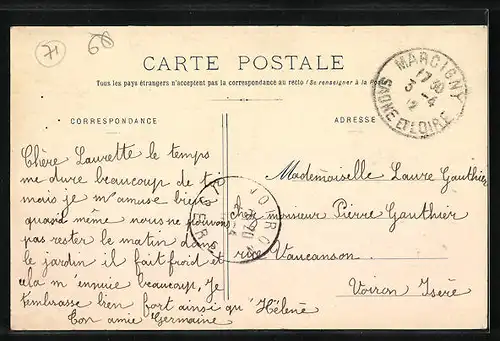 71
68
CARTE POSTALE
Tous les pays étrangers n'acceptent pas la correspondance au recto (Se renseigner à la Poste)
CORRESPONDANCE
ADRESSE
MARCIGNY
17 30
3 -4
12
SAONE ET LOIRE
Chère Laurette le temps
me dure beaucoup de toi
mais je m'amuse bien
quand même nous ne pouvons
pas rester le matin dans
le jardin il fait froid et
cela m'ennuie beaucoup, Je
t'embrasse bien fort ainsi qu'Hélène
Ton amie Germaine
VOIRON
ISERE
Mademoiselle Laure Gauthier
chez monsieur Pierre Gauthier
rue Vaucanson
Voiron Isère